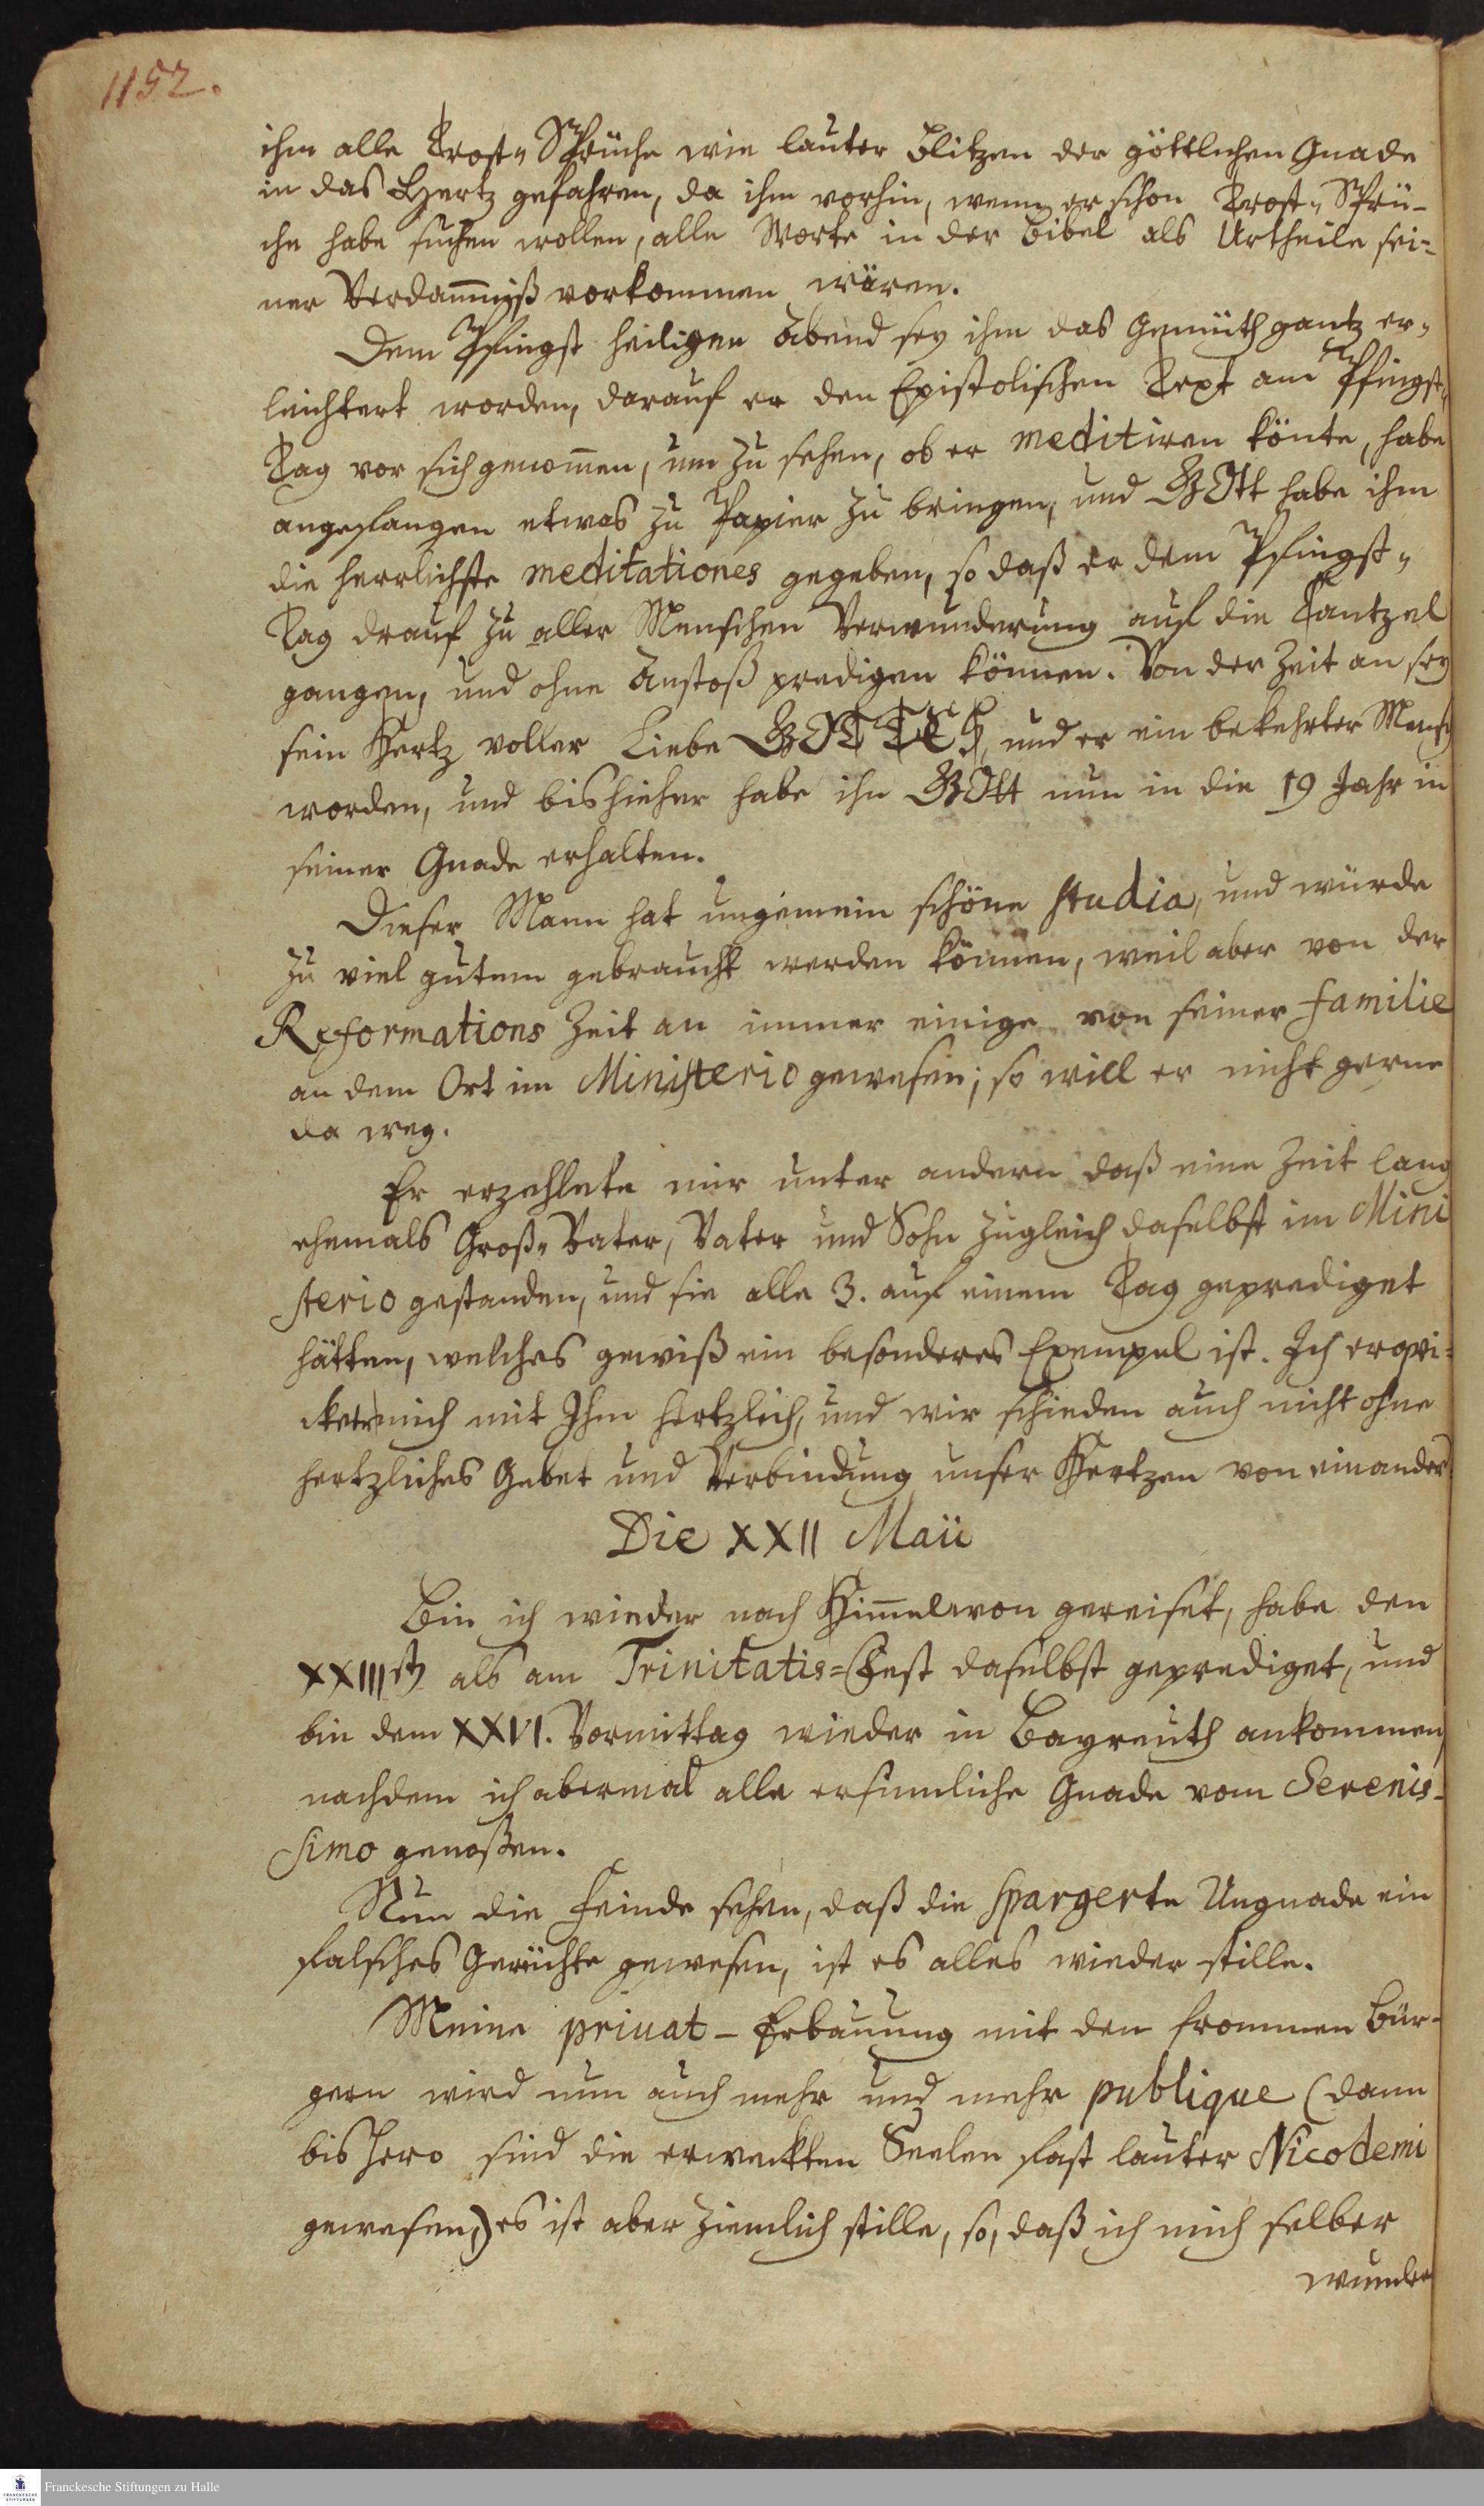 1152.
ihm alle Trost-Sprüche wie lauter Blitzen der göttlichen Gnade
in das Hertz gefahren, da ihm vorhin, wenn er schon Trost-Sprü-
che habe suchen wollen, alle Worte in der Bibel als Urtheile sei-
ner Verdam̅niß vorkommen wären.
Dem Pfingst heiligen Abend sey ihm das Gemüth gantz er-
leichtert worden, darauf er den Epistolischen Text am Pfingst-
Tag vor sich genom̅en, um zu sehen, ob er meditiren könte, habe
angefangen etwas zu Papier zu bringen, und GOtt habe ihm
die herrlichste meditationes gegeben, so daß er dem Pfingst-
Tag drauf zu aller Menschen Verwunderung auf die Cantzel
gangen, und ohne Anstoß predigen können. Von der Zeit an sey
sein Hertz voller Liebe GOTTES, und er ein bekehrter Mensch
worden, und bishieher habe ihn GOtt nun in die 19 Jahr in
seiner Gnade erhalten.
Dieser Mann hat ungemein schöne studia, und würde
zu viel gutem gebraucht werden können, weil aber von der
Reformations Zeit an immer einige von seiner familie
an dem Ort im Ministerio gewesen; so will er nicht gerne
da weg.
Er erzehlete mir unter andern daß eine Zeit lang
ehemals Groß-Vater, Vater und Sohn zugleich daselbst im Mini
sterio gestanden, und sie alle 3. auf einem Tag geprediget
hätten, welches gewiß ein besonderes Exempel ist. Ich erqvi-
ckete mich mit Ihm hertzlich, und wir schieden auch nicht ohne
hertzliches Gebet und Verbindung unser Hertzen von einander
Die XXII Maii
Bin ich wieder nach Him̅elcron gereiset, habe den
XXIIIsten als am Trinitatis-Fest daselbst geprediget, und
bin dem XXVI. Vormittag wieder in Bayreuth ankommen,
nachdem ich abermal alle ersinnliche Gnade vom Serenis-
simo genoßen.
Nun die Feinde sehen, daß die spargerte Ungnade ein
falsches Gerüchte gewesen, ist es alles wieder stille.
Meine privat-Erbauung mit den frommen Bür-
gern wird nun auch mehr und mehr publique (dann
bishero sind die erweckten Seelen fast lauter Nicodemi
gewesen,) es ist aber ziemlich stille, so, daß ich mich selber
wunder
Franckesche Stiftungen zu Halle